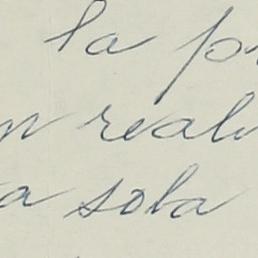 la p
n reali
a sola